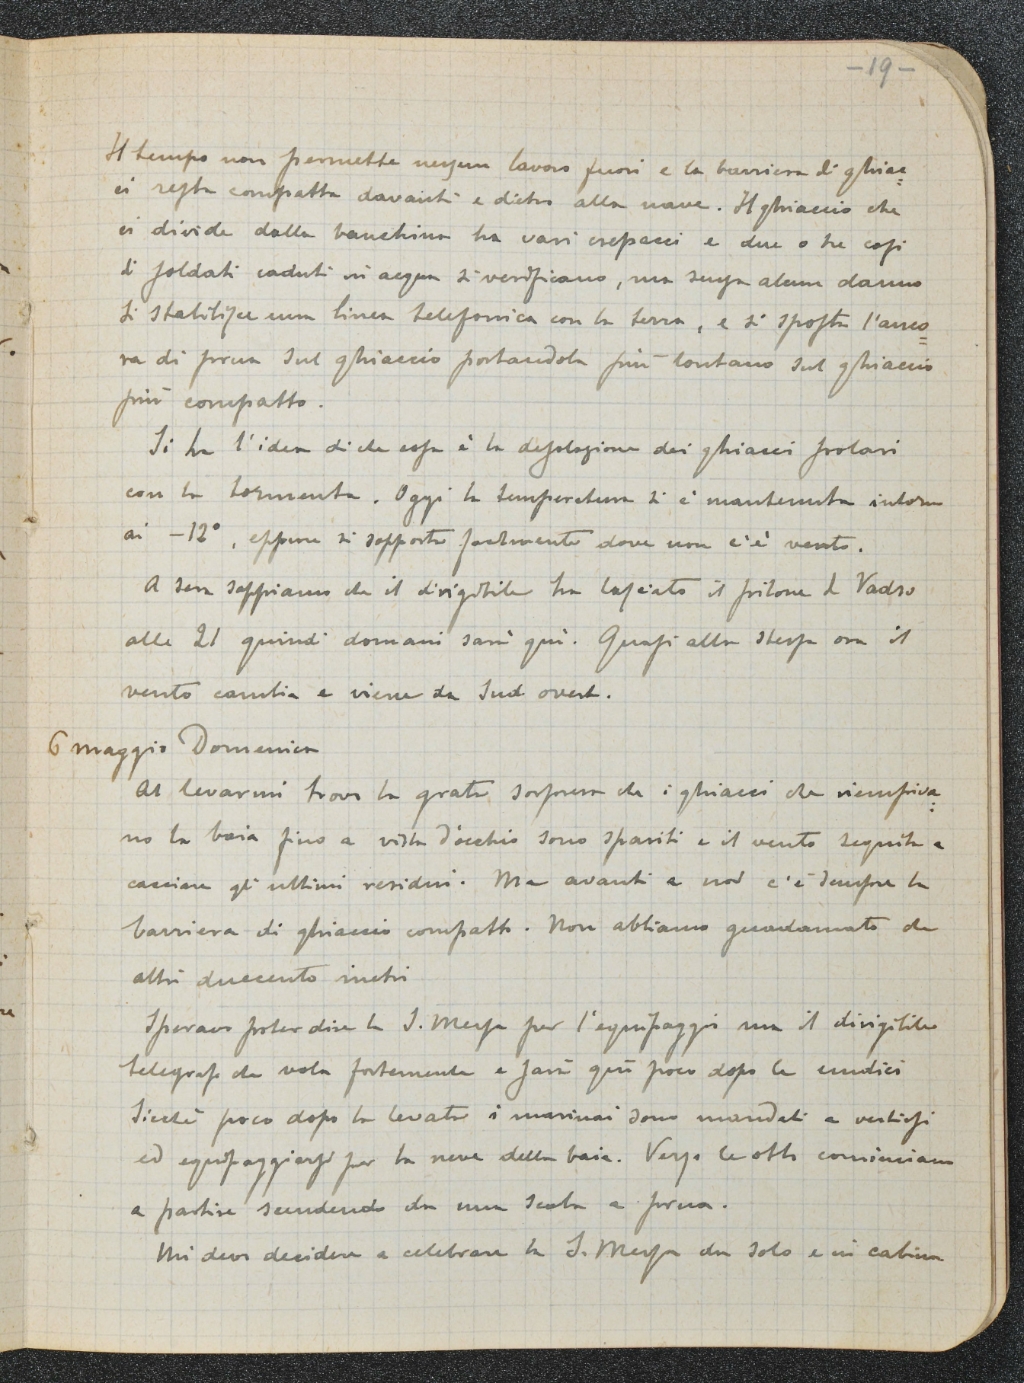 -19-
Il tempo non permette nessun lavoro fuori e la barriera di ghiac=
ci resta compatta davanti e dietro alla nave. Il ghiaccio che
ci divide dalla banchina ha vari crepacci e due o tre casi
di soldati caduti in acqua si verificano, ma senza alcun danno
Si stabilisce una linea telefonica con la terra, e si sposta l'anco=
ra di prua sul ghiaccio portandola più lontano sul ghiaccio
più compatto.
Si ha l'idea di che cosa è la desolazione dei ghiacci polari
con la tormenta. Oggi la temperatura si è mantenuta intorno
ai -12°, eppure si sopporta facilmente dove non c'è vento.
A sera sappiamo che il dirigibile ha lasciato il pilone di Vadso
alle 21 quindi domani sarà quì. Quasi alla stessa ora il
vento cambia e viene da Sud ovest.
6 maggio Domenica
Al levarmi trovo la grata sorpresa che i ghiacci che riempiva=
no la baia fino a vista d'occhio sono spariti e il vento seguita a
cacciare gli ultimi residui. Ma avanti a noi c'è sempre la
barriera di ghiaccio compatto. Non abbiamo guadamato che
altri duecento metri
Speravo poter dire la S. Messa per l'equipaggio ma il dirigibile
telegrafa che vola fortemente e sarà quì poco dopo le undici
Sicché poco dopo la levata i marinai sono mandati a vestirsi
ed equipaggiarsi per la neve della baia. Verso le otto cominciano
a partire scendendo da una scala a prua.
Mi devo decidere a celebrare la S. Messa da solo e in cabina